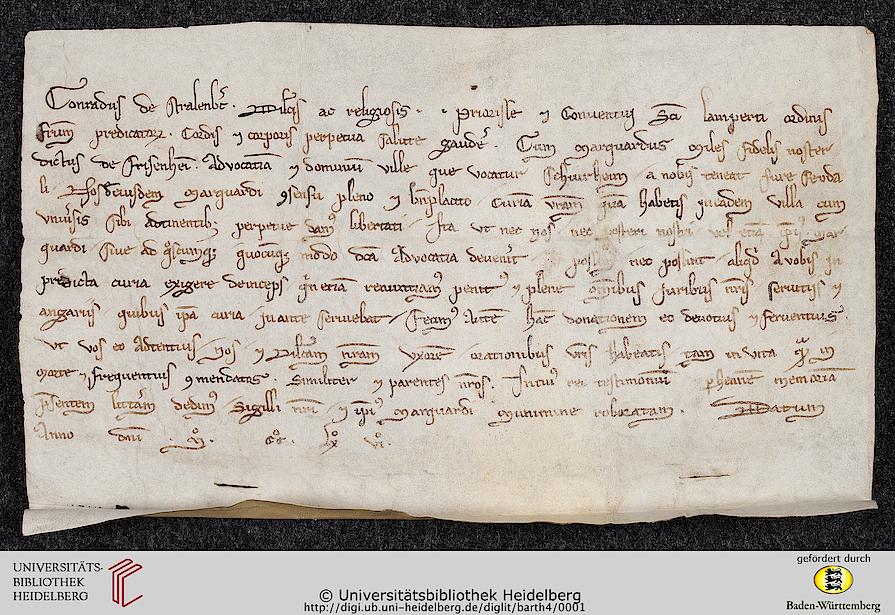 Conradus de Stralenbc. Dilcis ac religiosis. Priorisse ⁊ Conventui Sci lamperti ordinis
frum predicatorꝝ. Cordis ⁊ corporis perpetua salute gaude. Cum marquardus miles fidelis noster
dictus de Frisenhei. Advocatiā ⁊ dominiū ville que vocatur Schiurheim a nobis teneat jure feoda
li. Nos de eiusdem marquardi ꝯsensu pleno ⁊ bnplacito curiā vram qua habetis in eadem villa cum
univsis sibi adtinentibꝫ perpetue dam libertati. Ita ut nec nos nec posteri nostri vel etiā ipi mar
quardi. Sive ad quocūqꝫ modo dca Advocatia devenit nec possint aliqd a vobis in
predicta curia exigere deinceps qn etiā renuntiam penit ⁊ plene omibus juribus nris servitiis ⁊
angariis quibus ipa curia in ante serviebat. Fecim Autē hāc donationem eo devotius ⁊ ferventius
ut vos eo adtentius Nos ⁊ Dilcam nram uxorē orationibus vris habeatis tam in vita qm in
morte ⁊ frequentius ꝯmendatos. Similiter ⁊ parentes nros. In cui rei testimoniū ⁊ phenne memoriā
psentem litam dedim Sigilli nri ⁊ ipi marquardi munimine roboratam. Datum
Anno dni. M. CC. LX. VI.
UNIVERSITÄTS-
BIBLIOTHEK
HEIDELBERG
© Universitätsbibliothek Heidelberg
http://digi.ub.uni-heidelberg.de/diglit/barth4/0001
gefördert durch
Baden-Württemberg